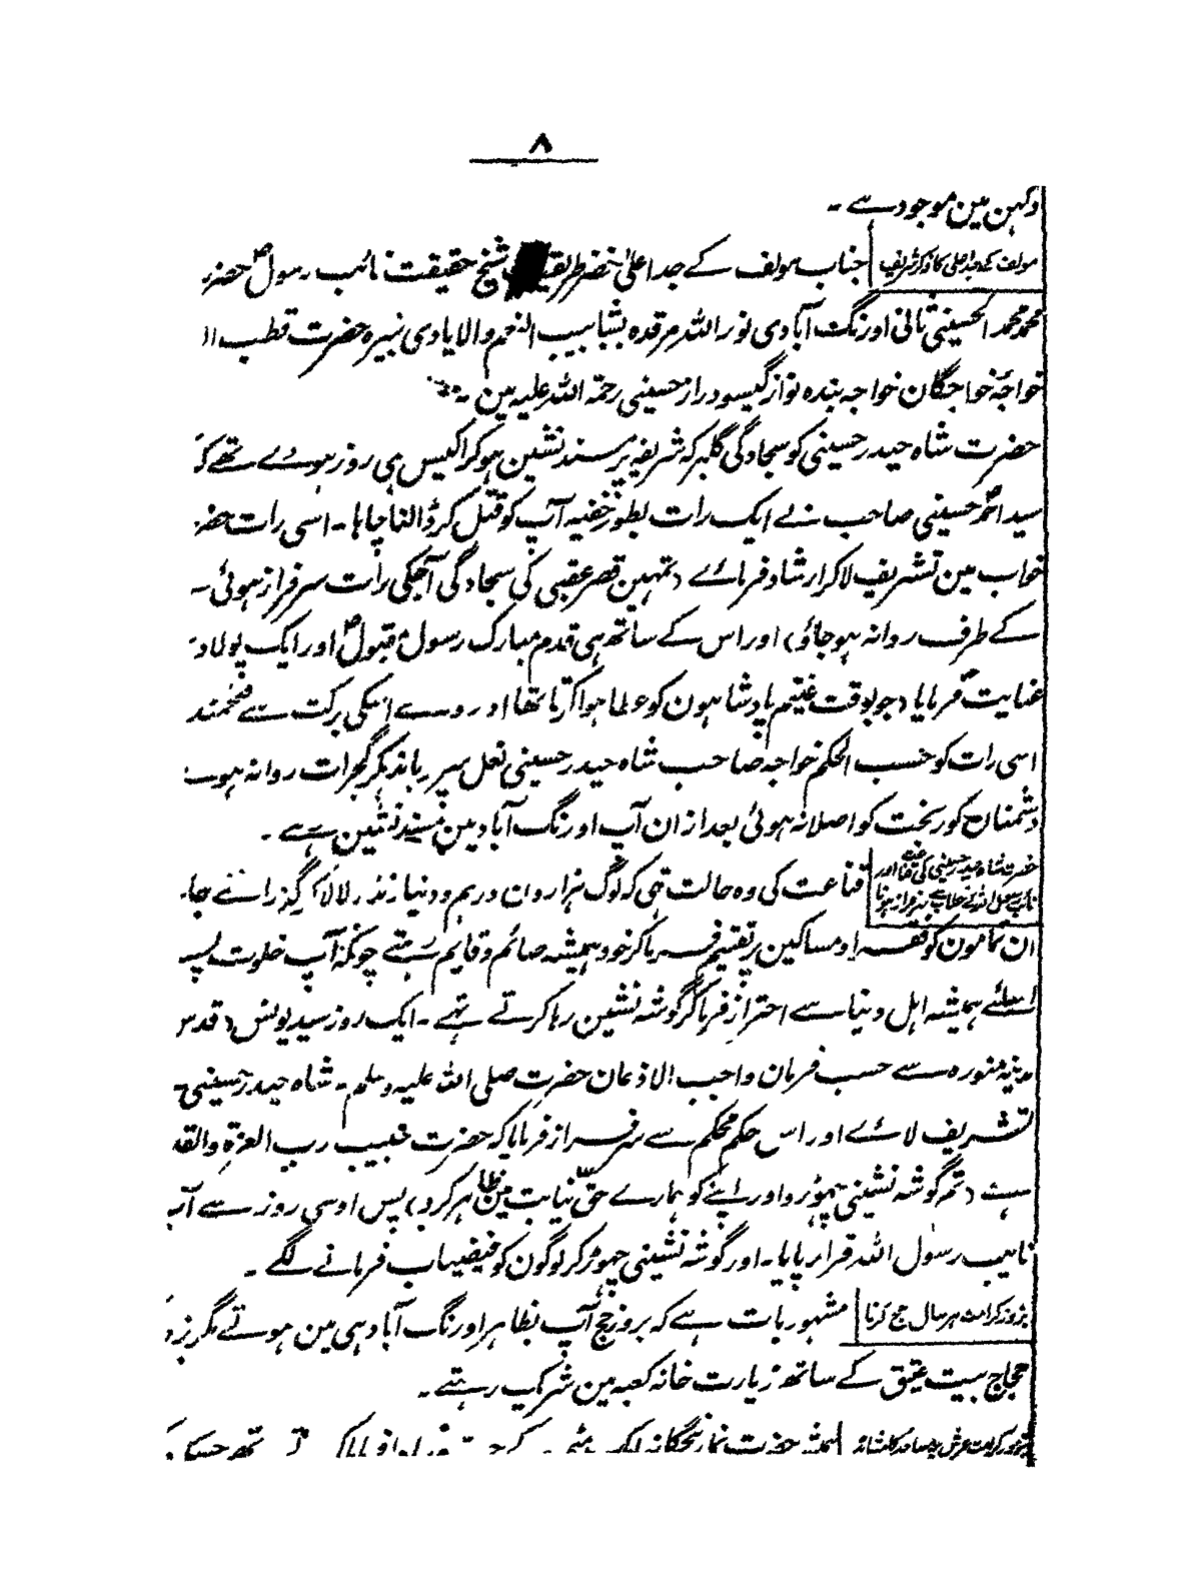 ۸
دکہن مین موجود ہے ۔
مولف کے جد اعلی کا ذکر شریف
جناب مولف کے جد اعلیٰ خضر طریقت شیخ حقیقت نائب رسولؐ حضر
محمد محمد الحسینی ثانی اورنگ آبادی نور اللہ مرقدہ نبیرہ حضرت قطب ال
خواجۂ خواجگان خواجہ بندہ نواز گیسو دراز حسینی رحمۃ اللہ علیہ ہین ۔
حضرت شاہ حیدر حسینی کو سجادگی گلبرکہ شریف پر مسند نشین ہو کر اکیس ہی روز ہوے تھے کہ
سید احمد حسینی صاحب نے ایک رات بطور خفیہ آپ کو قتل کر ڈالنا چاہا ۔ اسی رات حضر
خواب مین تشریف لا کر ارشاد فرماے (تمہین قصر عقبی کی سجادگی آجکی رات سرفراز ہوئی ۔
کے طرف روانہ ہو جاؤ) اور اس کے ساتھ ہی قدم مبارک رسول مقبولؐ اور ایک پولاد
عنایت فرمایا (جو بوقت غنیم پادشاہون کو عطا ہوا کرتا تھا اور وہ اسکی برکت سے فتحمند
اسی رات کو حسب الحکم خواجہ صاحب شاہ حیدر حسینی نعل سر پر باندہکر گجرات روانہ ہوے
دشمنان کور بخت کو اصلا نہ ہوئی بعد ازان آپ اورنگ آباد مین مسند نشین رہے ۔
حضرت شاہ حیدر حسینی کی قناعت اور
نائب رسول اللہ کے خطاب سے سرفراز ہونا
قناعت کی وہ حالت تہی کہ لوگ ہزارون درہم و دنیا نذر لا لا کر گذرانتے جا
ان تمامون کو فقرا و مساکین پر تقسیم فرما کر خود ہمیشہ صائم و قایم رہتے چونکہ آپ خلوت پس
اسلئے ہمیشہ اہل دنیا سے احتراز فرما کر گوشہ نشین رہا کرتے تہے ۔ ایک روز سید یونس (قدس
مدینہ منورہ سے حسب فرمان واجب الاذعان حضرت صلی اللہ علیہ وسلم ۔ شاہ حیدر حسینی
تشریف لاے اور اس حکم محکم سے سرفراز فرمایا کہ حضرت حبیب رب العزۃ والقد
ہے (تم گوشہ نشینی چھوڑ دو اور اپنے کو ہمارے حق نیابت مین ظاہر کرو) پس اوسی روز سے آپ
نایب رسول اللہ قرار پایا ۔ اور گوشہ نشینی چھوڑ کر لوگون کو فیضیاب فرمانے لگے ۔
بزور کرامت ہر سال حج کرنا
مشہور بات ہے کہ بروز حج آپ بظاہر اورنگ آباد ہی مین ہوتے مگر بزو
حجاج بیت عتیق کے ساتھ زیارت خانہ کعبہ مین شریک رہتے ۔
ہمیشہ حضرت نماز پنجگانہ